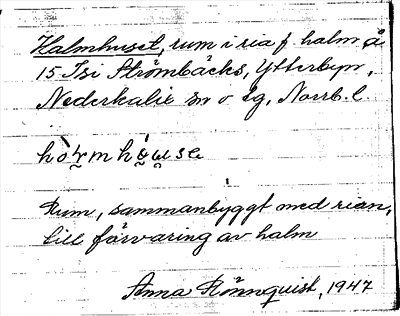 Halmhuset, rum i ria f halm å
15 Isi Strömbäcks, Ytterbyn,
Nederkalix sn o lg, Norrb. l.
Rum, sammanbyggt med rian,
till förvaring av halm
Anna Rönnquist, 1947